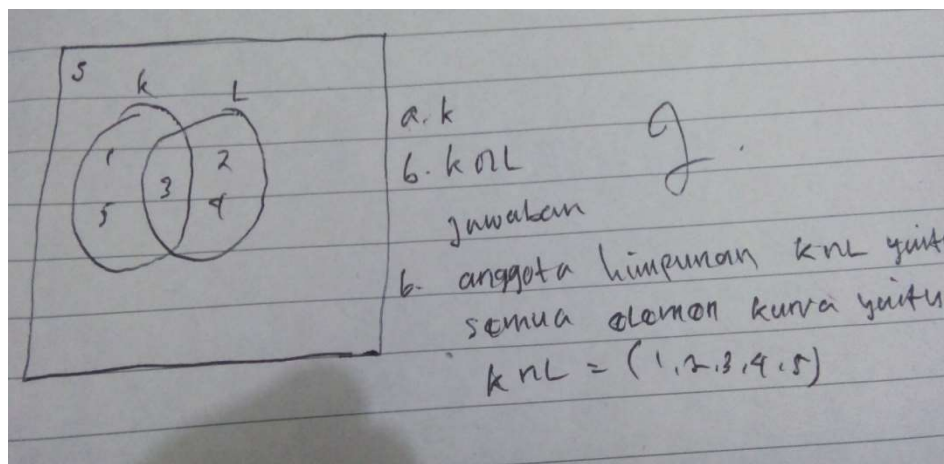 S
K L
1 3 2
5 4
a. k
b. k n L
g.
Jawaban
b. anggota himpunan k n L yaitu
semua elemen kurva yaitu
k n L = (1, 2, 3, 4, 5)